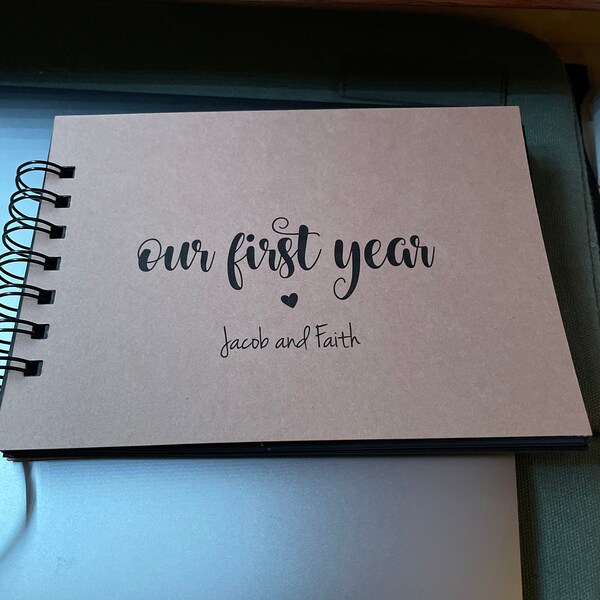 our first year
Jacob and Faith